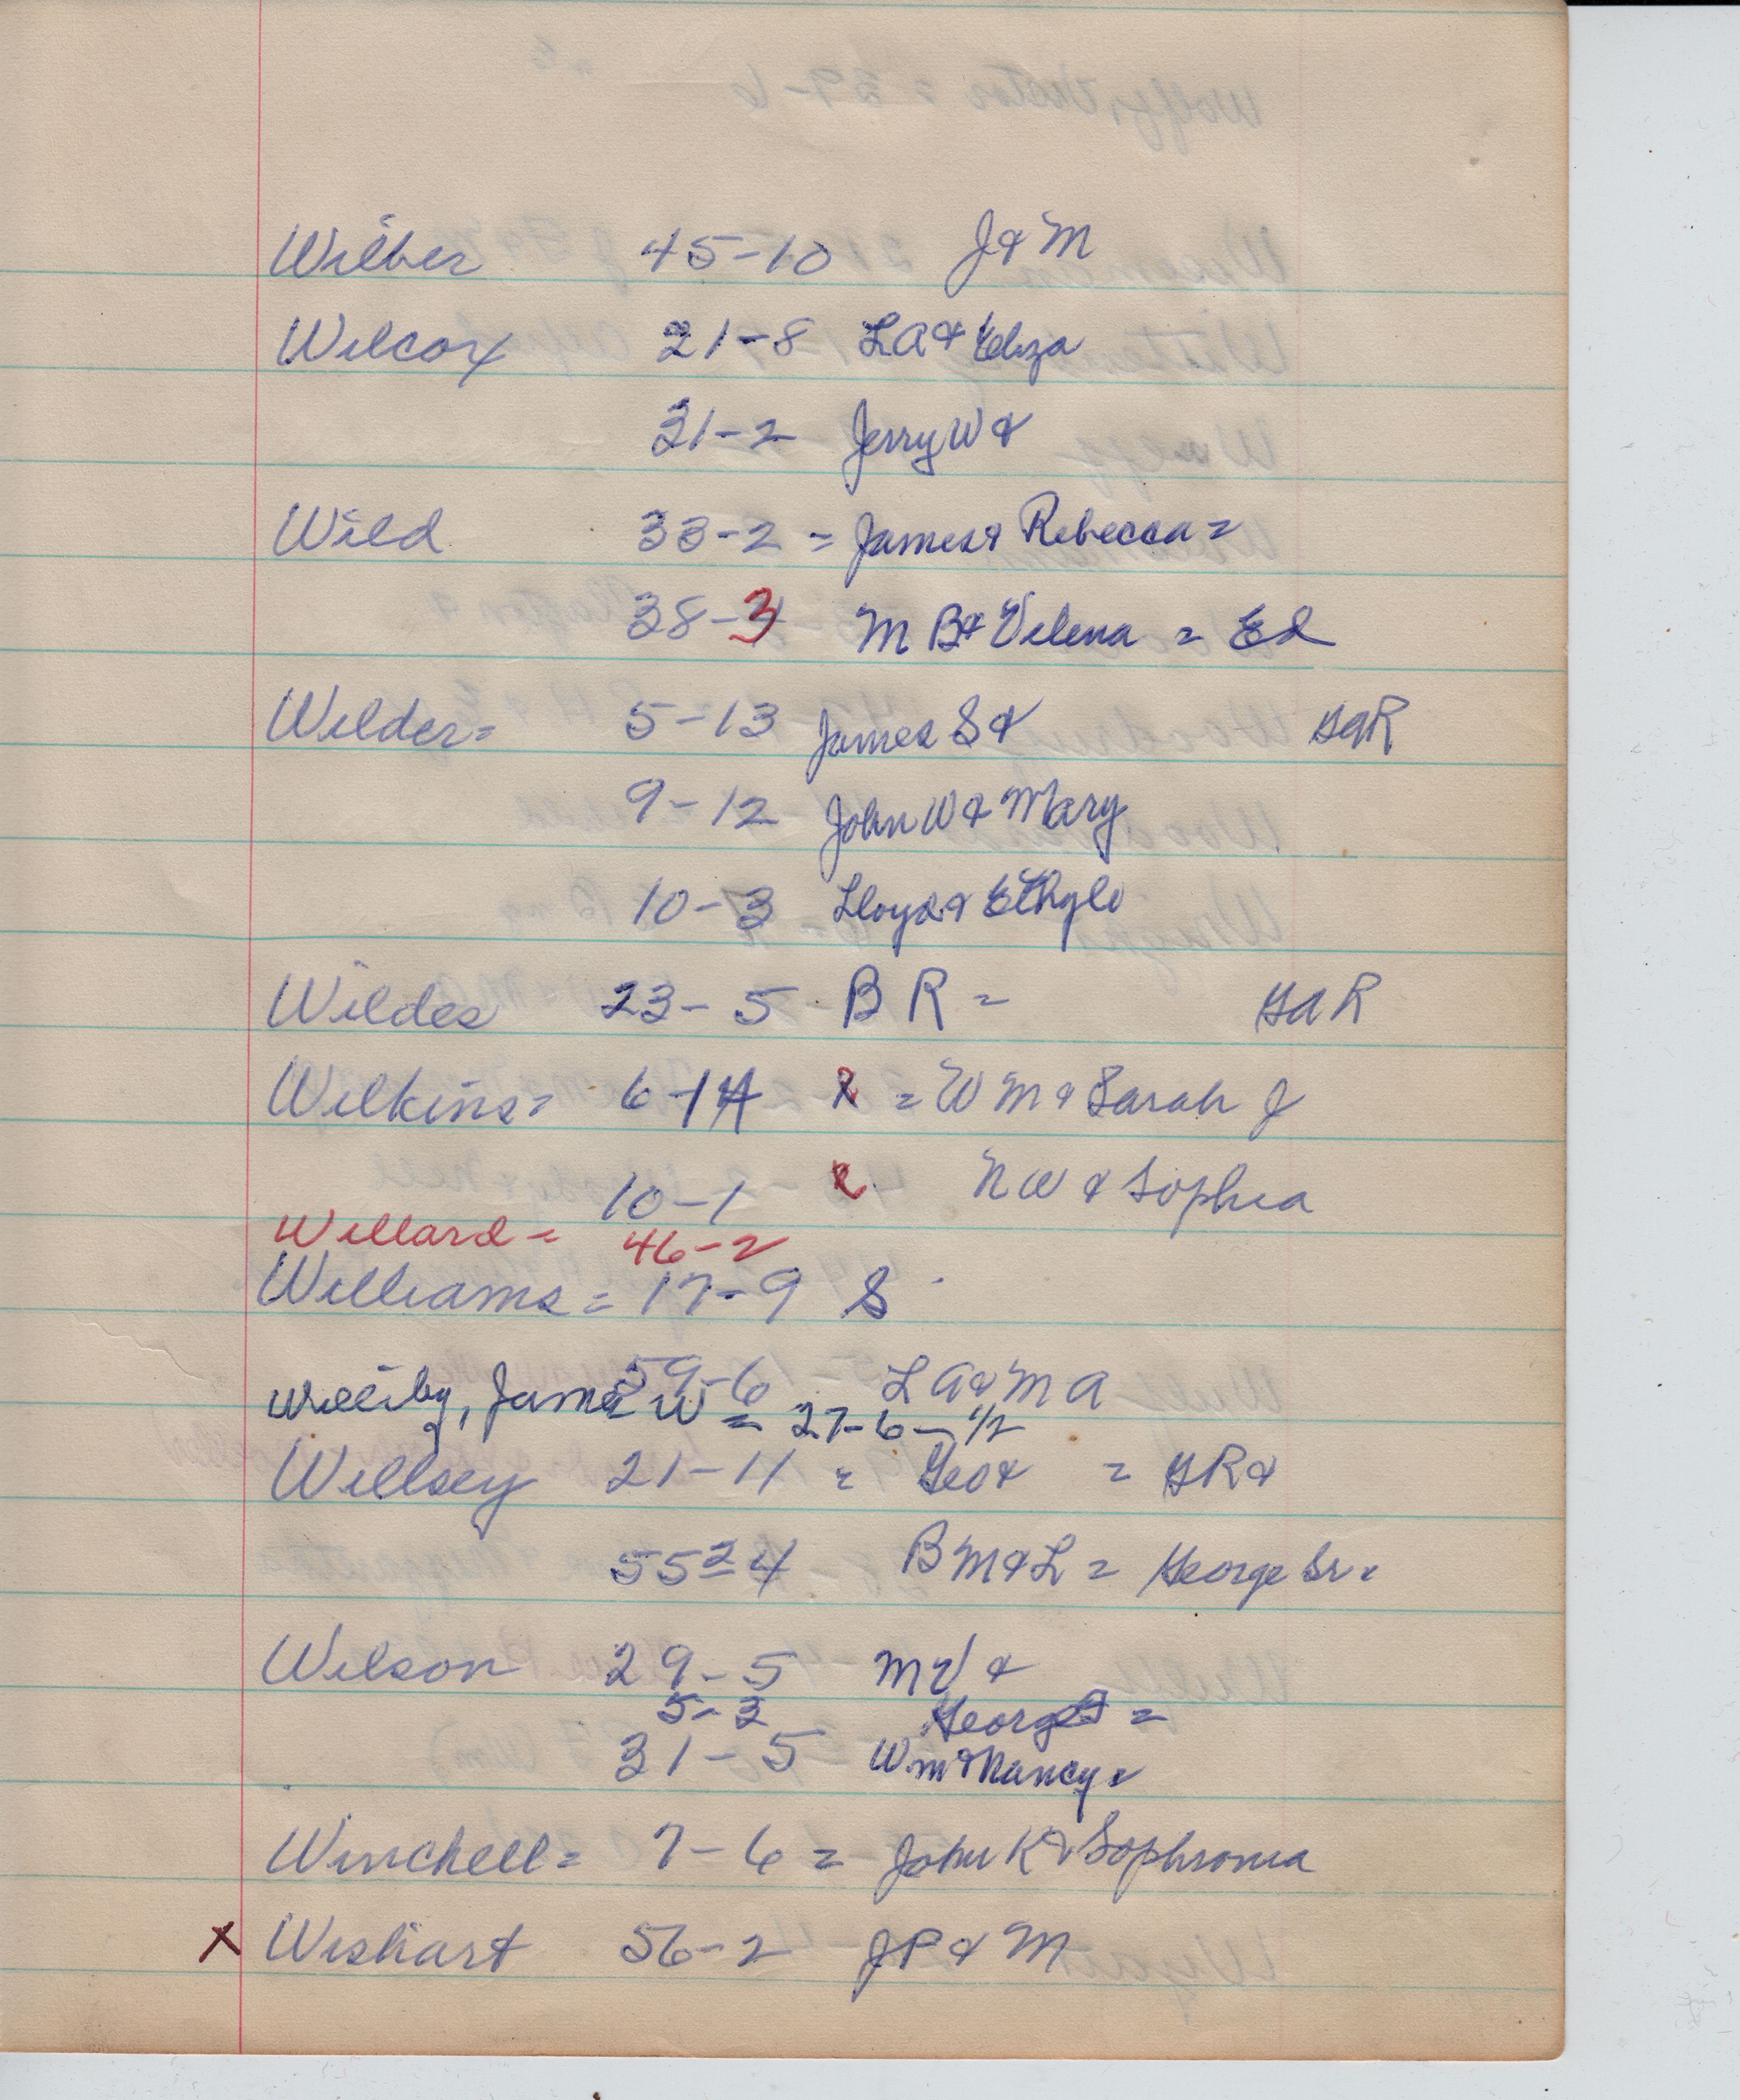 Wilber 45-10 J & M
Wilcox 21-8 LA & Eliza
31-2 Jerry W &
Wild 33-2 = James & Rebecca =
38-3 M B & Velena = Ed
Wilder = 5-13 James S & GAR
9-12 John W & Mary
10-3 Lloyd & Ethyle
Wildes 23-5 B R = GAR
Wilkins = 6-14 R = W M & Sarah J
10-1 R. N W & Sophia
Willard = 46-2
Williams = 17-9 S
59-6 L A & M A
Williby, James W = 27-6-1/2
Willsey 21-11 = Geo & = GR &
55-4 B M & L = George Sr =
Wilson 29-5 M V &
5-3 George =
31-5 Wm & Nancy =
Winchell = 7-6 = John K & Sophronia
X Wishart 56-2 JP & M